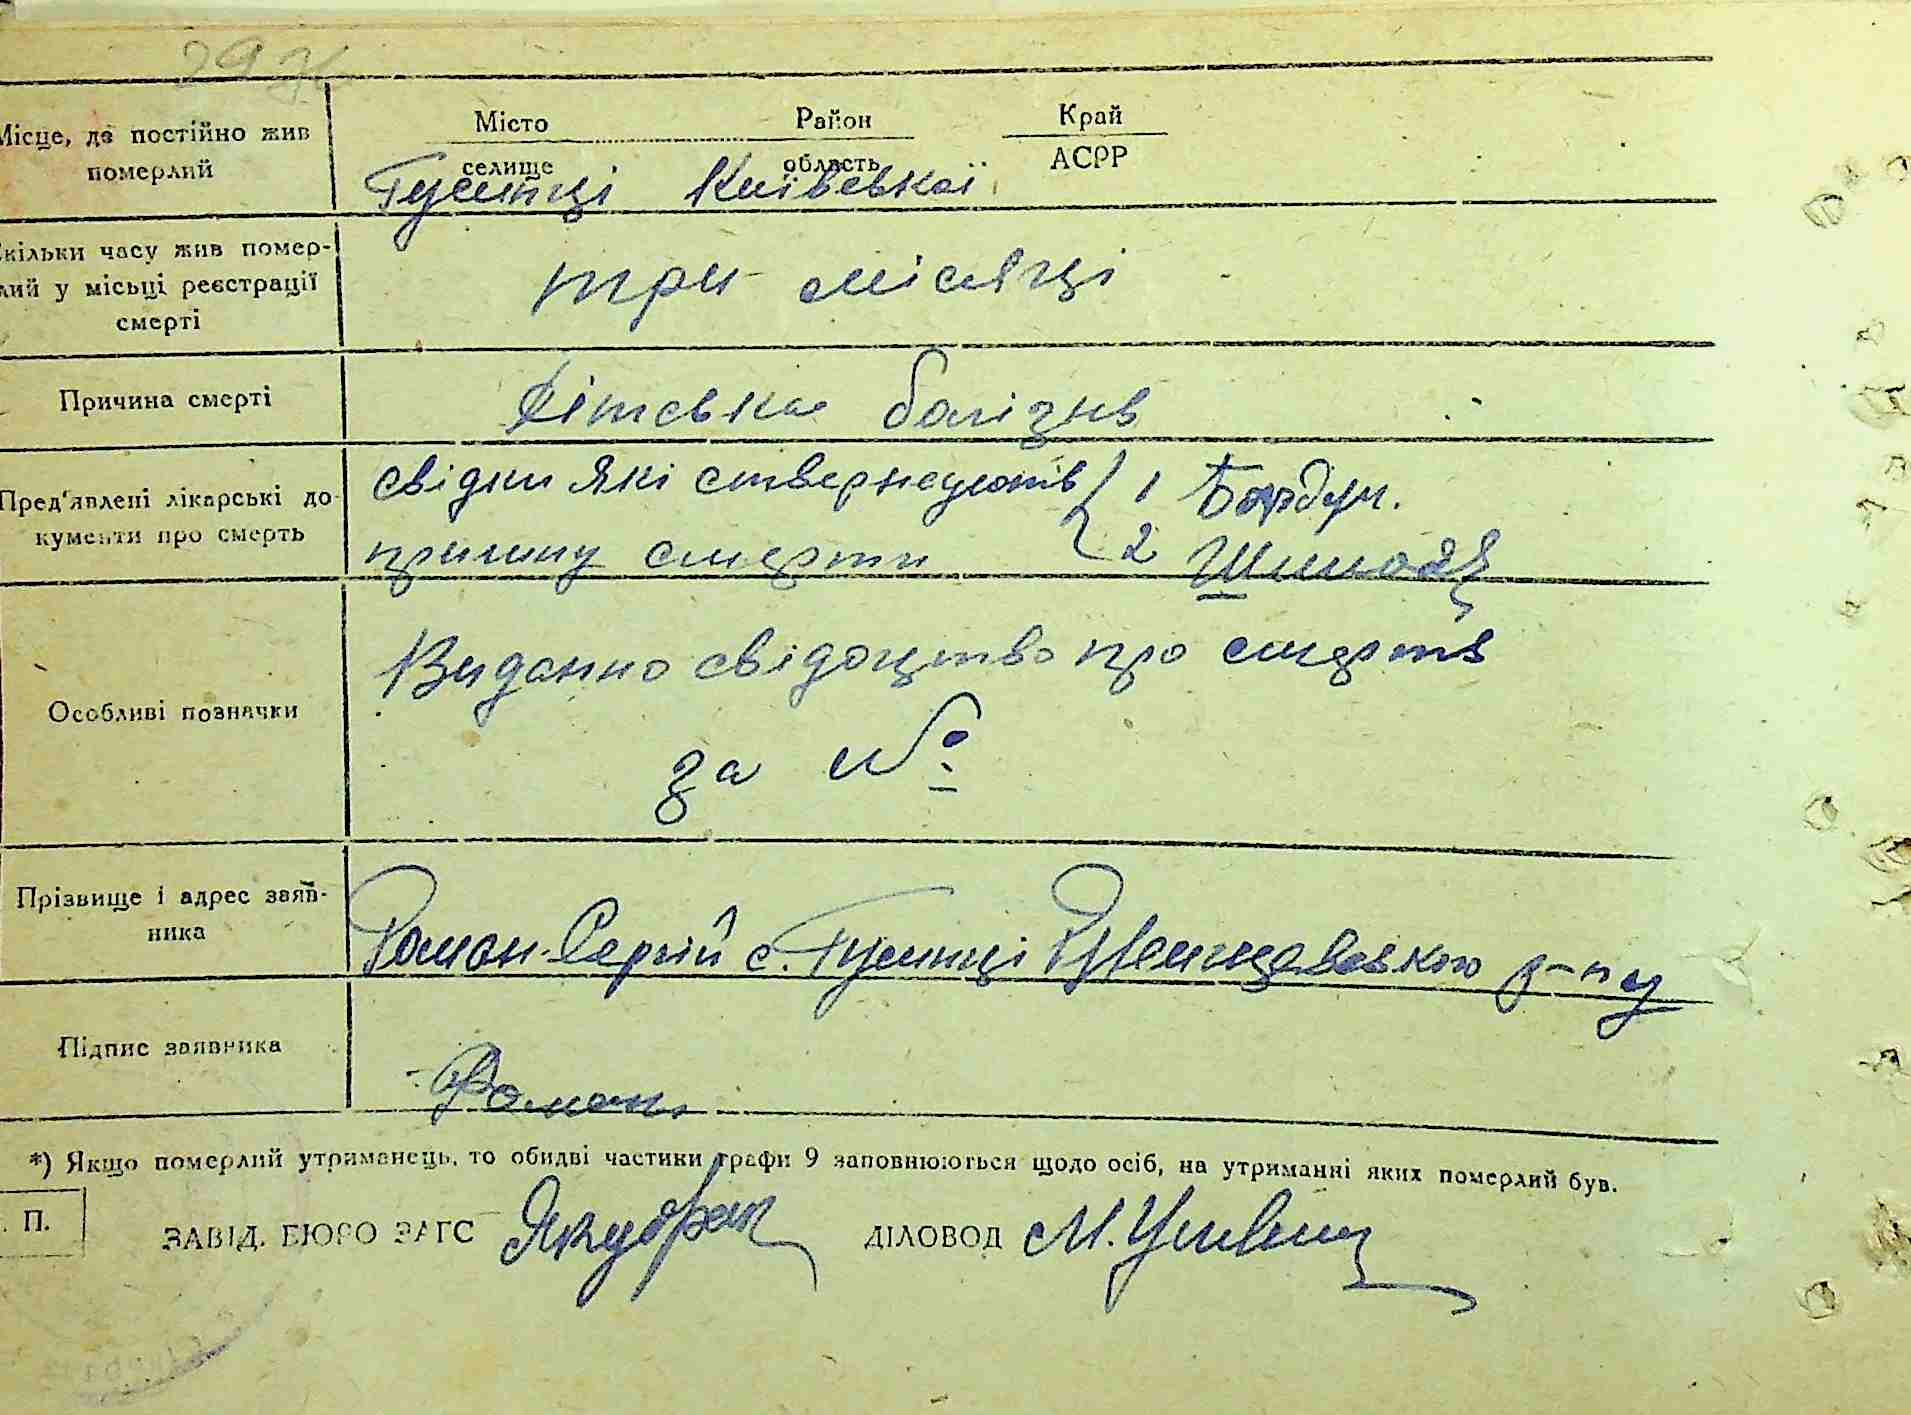 29
Місце, де постійно жив
померлий
Місто Район Край
селище область АСРР
Гусинці Київської
Скільки часу жив помер-
лий у місьці реєстрації
смерті
три місяці
Причина смерті
Дітська болізнь
Пред'явлені лікарські до-
кументи про смерть
свідки які ствержують 1 Бардун.
причину смерти 2
Особливі позначки
Виданно свідоцтво про смерть
за №
Прізвище і адрес заяв-
ника
Роман Сергій с. Гусинці Ржищевського р-ну
Підпис заявника
Роман
*) Якщо померлий утриманець, то обидві частини графи 9 заповнюються щодо осіб, на утриманні яких померлий був.
. П.
ЗАВІД. БЮРО ЗАГС ДІЛОВОД М.